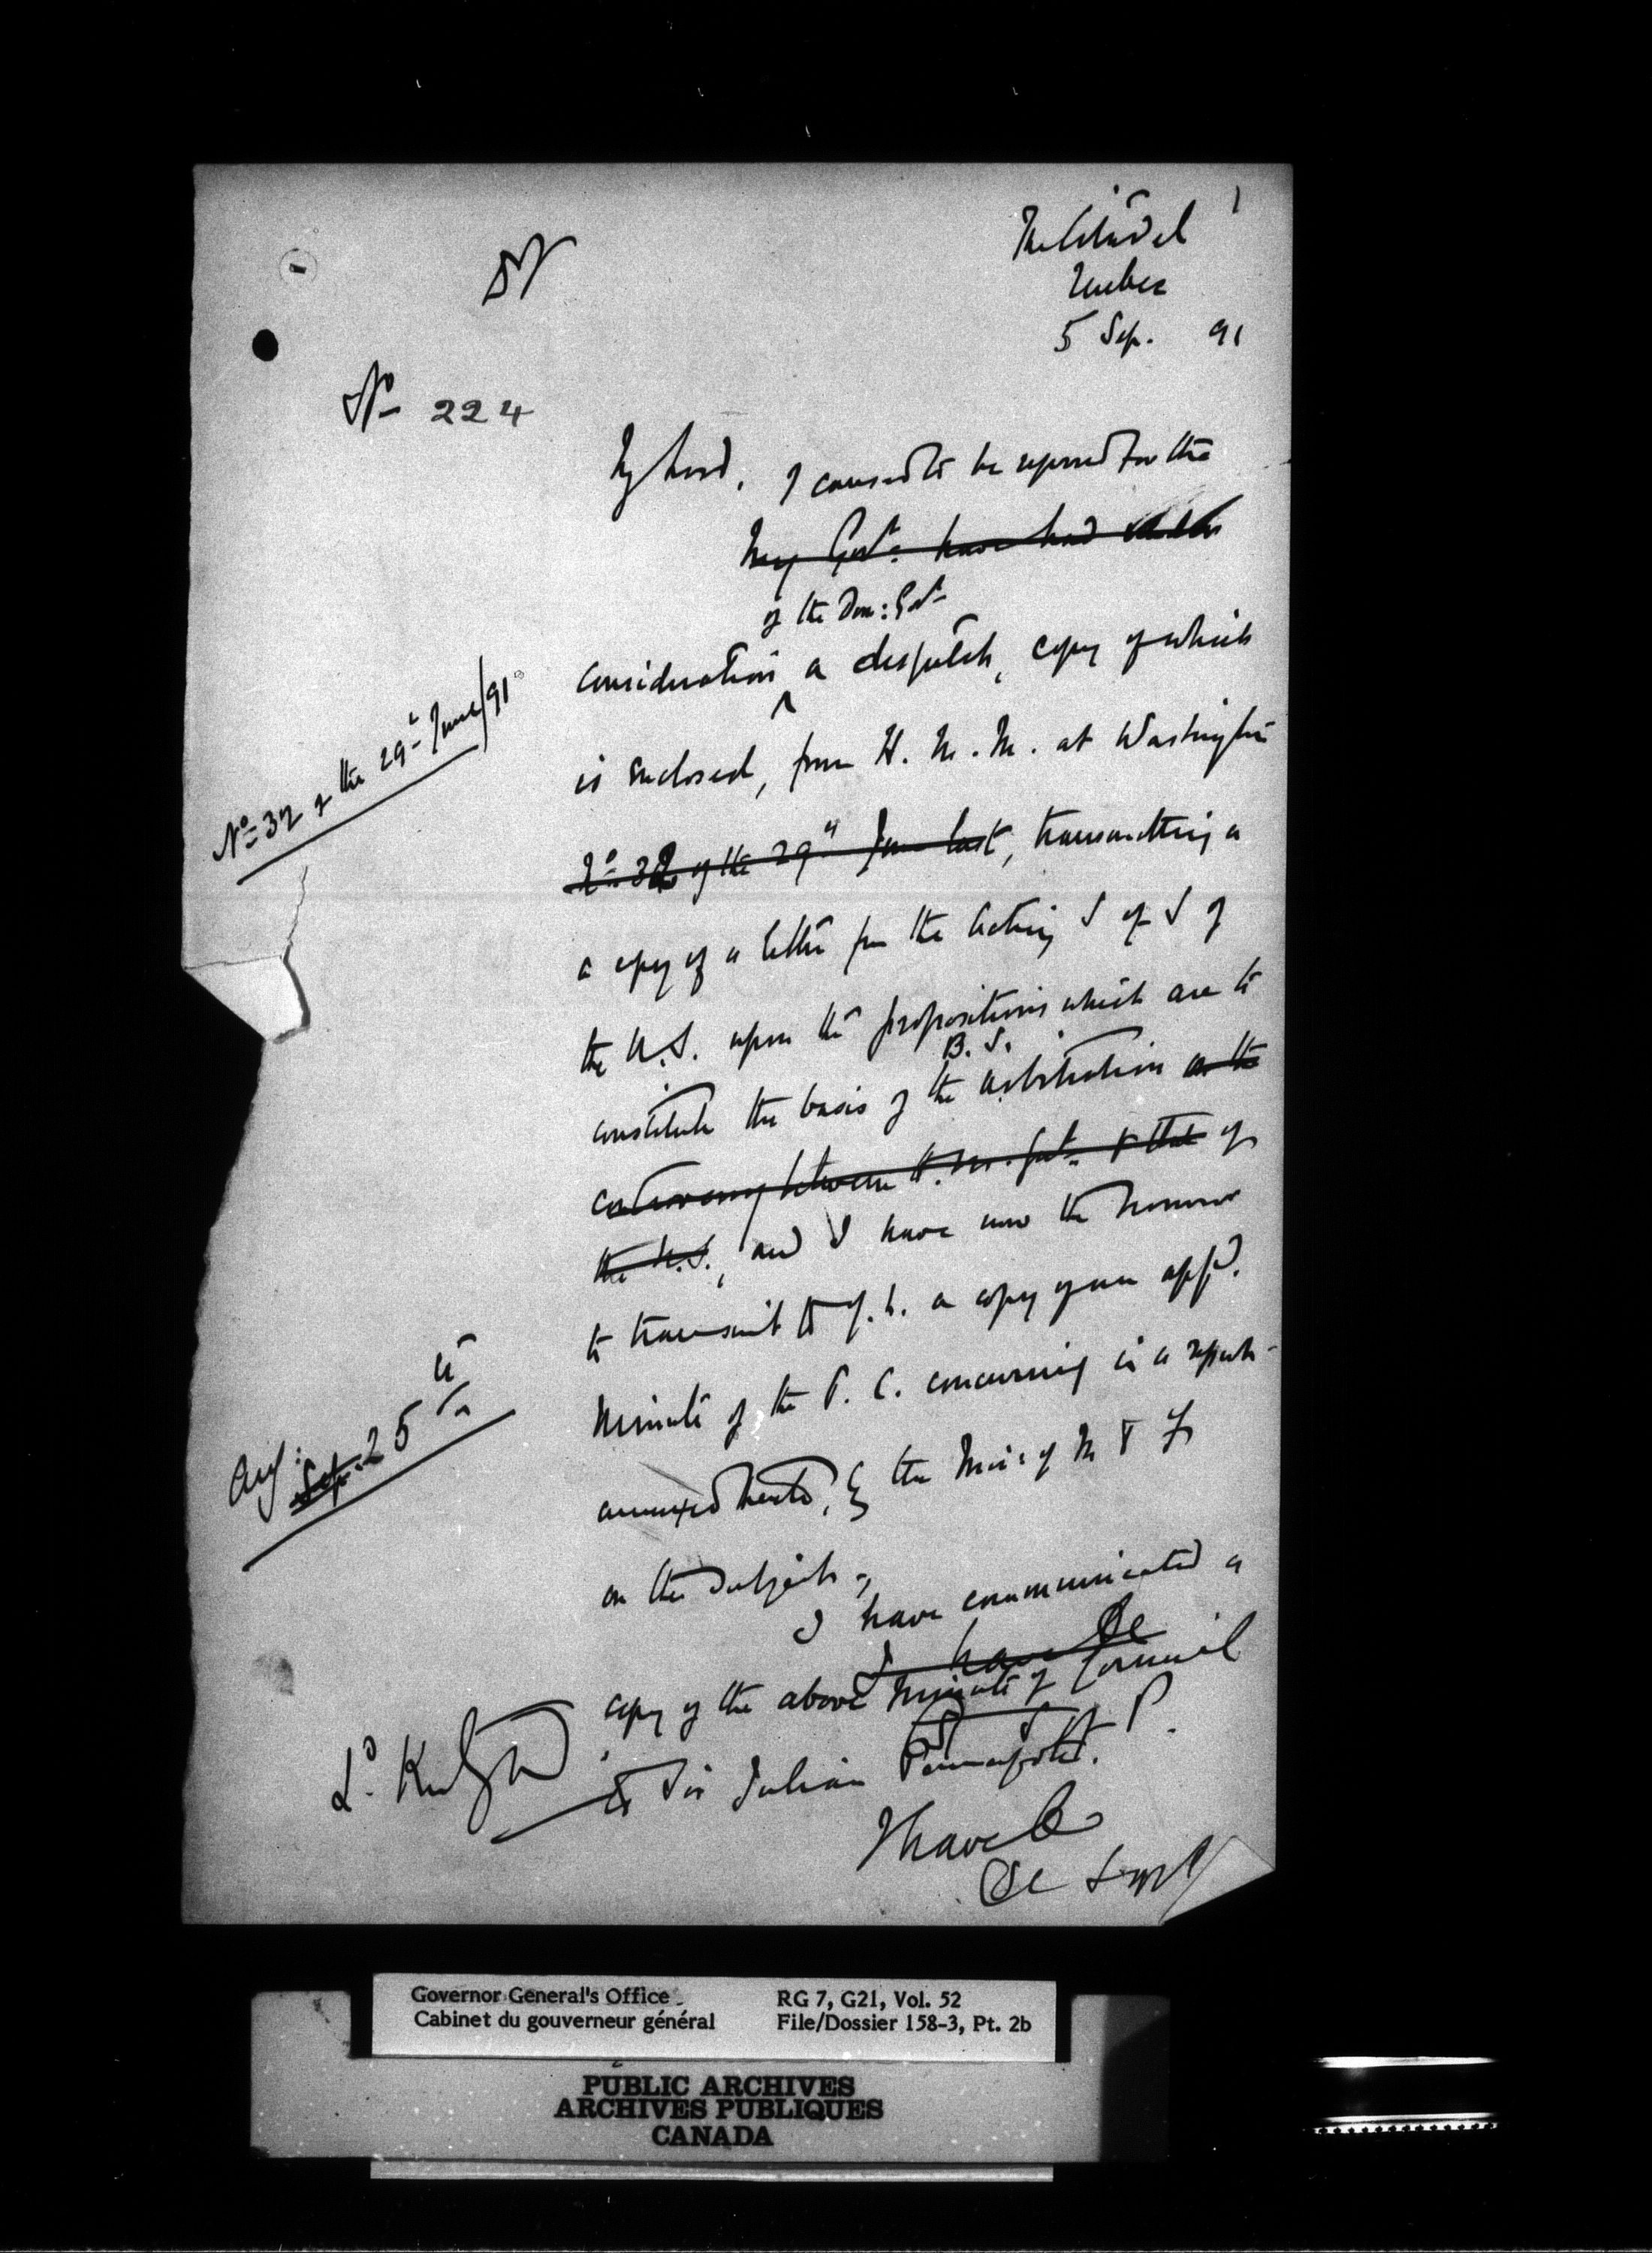 1
The Citadel
Quebec
5 Sep. 91
No 224
My Lord, I caused to be referred for the
My Govt. have had under
of the Dom: Govt
consideration a despatch, copy of which
is enclosed, from H. M. M. at Washington
No 32 of the 29th June/91
No 32 of the 29th June last, transmitting a
a copy of a letter from the Acting S of S of
the U.S. upon the propositions which are to
B. S.
constitute the basis of the arbitration on the
controversy between H. M. Govt. & that of
the U.S., and I have now the honour
to transmit to Y. L. a copy of an appd.
Minute of the P. C. concurring in a report
Aug: Sep. 25th
annexed hereto, by the Min: of M & F
on the subject.
I have communicated a
I have &c
copy of the above Minute of Council
to Sir Julian Pauncefote.
Ld. Knutsford
I have &c
Governor General's Office RG 7, G21, Vol. 52
Cabinet du gouverneur général File/Dossier 158-3, Pt. 2b
PUBLIC ARCHIVES
ARCHIVES PUBLIQUES
CANADA